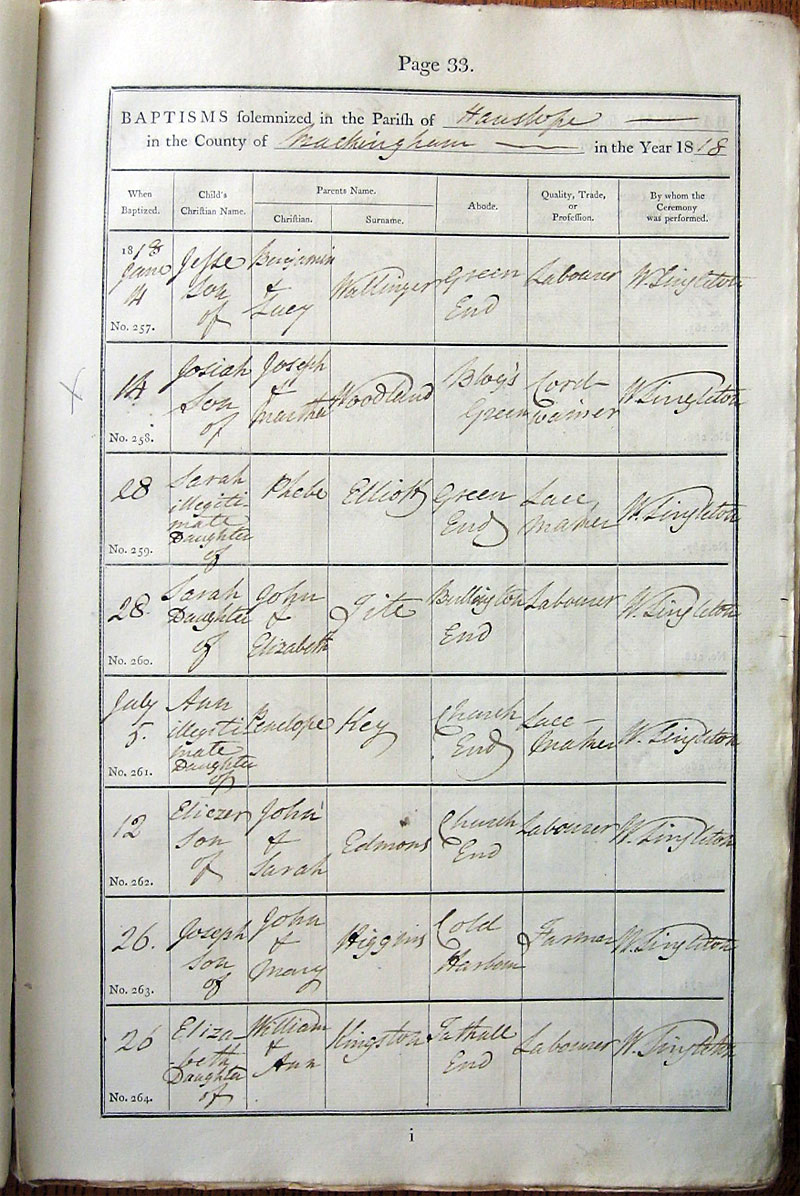 Page 33.
BAPTISMS solemnized in the Parish of Hanslope
in the County of Buckingham in the Year 1818
When Baptized.
Child's Christian Name.
Parents Name.
Christian.
Surname.
Abode.
Quality, Trade, or Profession.
By whom the Ceremony was performed.
1818
June
14
No. 257.
Jesse
Son
of
Benjamin
&
Lucy
Wallinger
Green
End
Labourer
W. Singleton
14
No. 258.
Josiah
Son
of
Joseph
&
Martha
Woodland
Green
Cord-
wainer
W. Singleton
28
No. 259.
Sarah
illegiti-
mate
Daughter
of
Phebe
Elliott
Green
End
Lace
Maker
W. Singleton
28
No. 260.
Sarah
Daughter
of
John
&
Elizabeth
Tite
Bullington
End
Labourer
W. Singleton
July
5.
No. 261.
Ann
illegiti-
mate
Daughter
of
Penelope
Key
Church
End
Lace-
maker
W. Singleton
12
No. 262.
Eliezer
Son
of
John
&
Sarah
Edmons
Church
End
Labourer
W. Singleton
26.
No. 263.
Joseph
Son
of
John
&
Mary
Higgins
Cold
Harbour
Farmer
W. Singleton
26
No. 264.
Eliza-
beth
Daughter
of
William
&
Ann
Kingston
Tathall
End
Labourer
W. Singleton
i